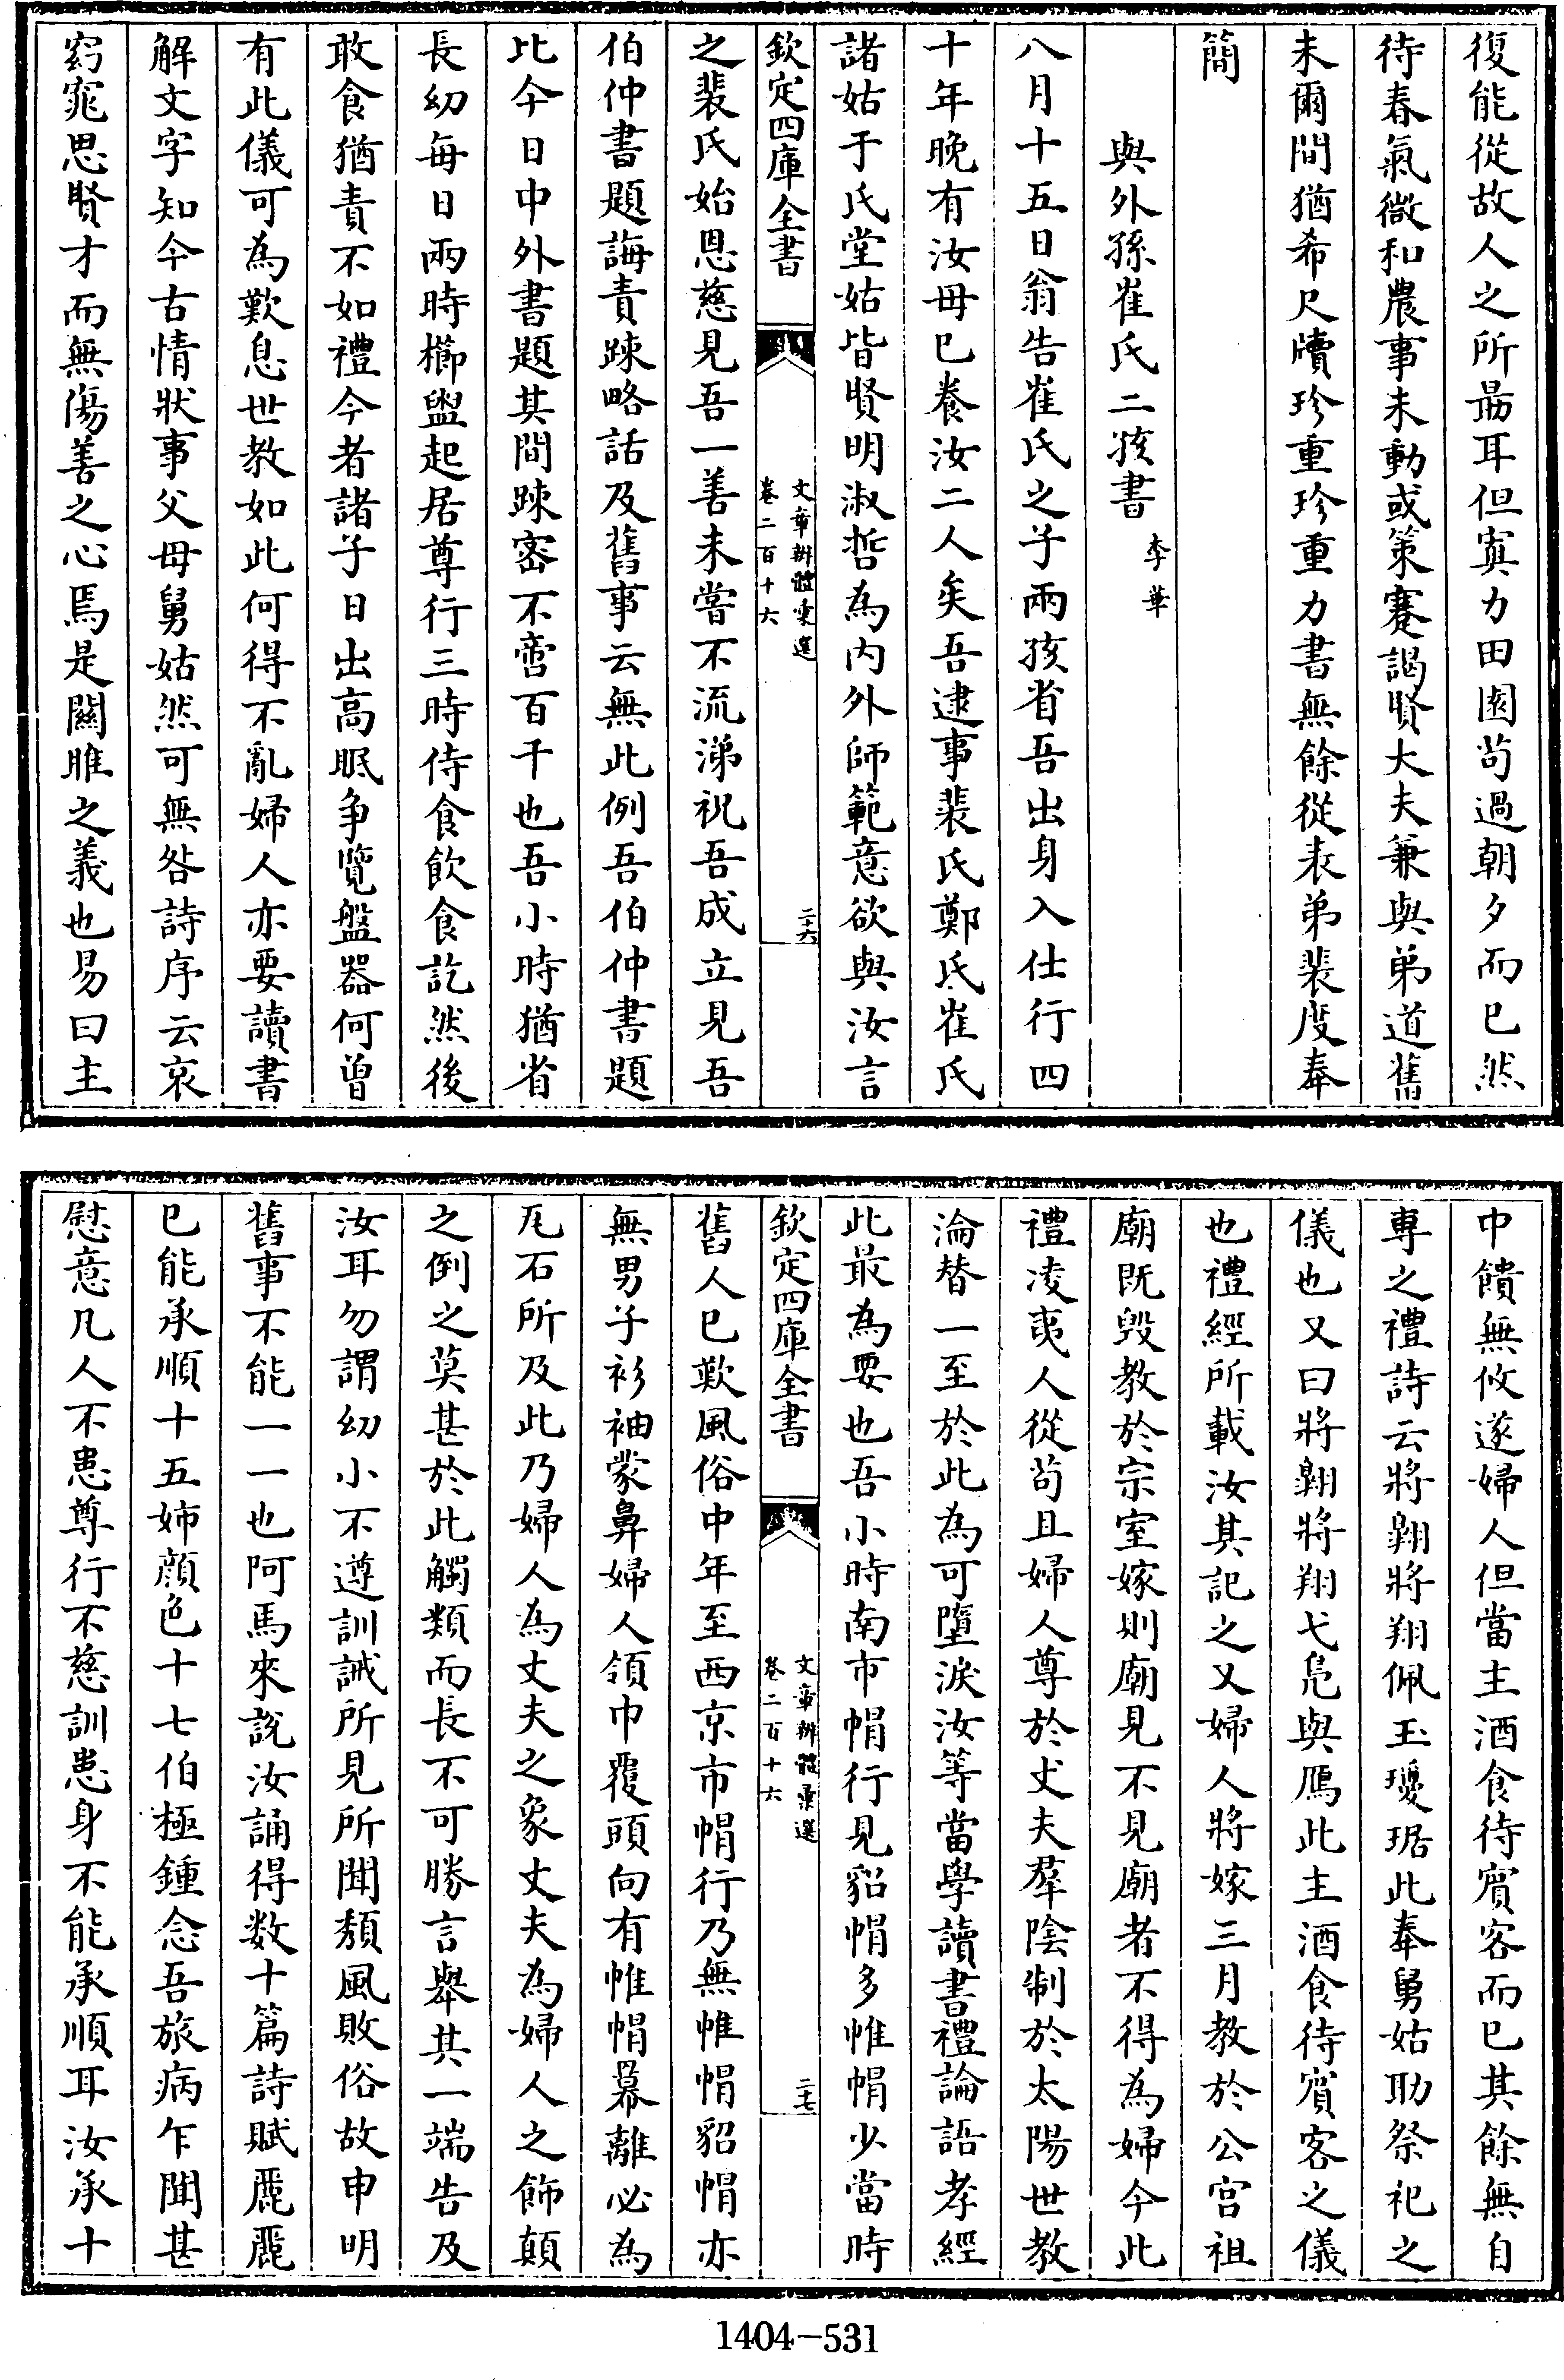 復能從故人之所勗耳但寘力田園苟過朝夕而已然
待春氣微和農事未動或策蹇謁賢大夫兼與弟道舊
未爾間猶希尺牘珍重珍重力書無餘從表弟裴度奉
簡
與外孫崔氏二孩書 李華
八月十五日翁告崔氏之子兩孩省吾出身入仕行四
十年晚有汝母已養汝二人矣吾逮事裴氏鄭氏崔氏
諸姑于氏堂姑皆賢明淑哲為内外師範意欲與汝言
欽定四庫全書 文章辨體彙選 卷二百十六 二十六
之裴氏始恩慈見吾一善未嘗不流涕祝吾成立見吾
伯仲書題誨責踈略話及舊事云無此例吾伯仲書題
比今日中外書題其間踈宻不啻百千也吾小時猶省
長幼每日兩時櫛盥起居尊行三時侍食飲食訖然後
敢食猶責不如禮今者諸子日出高眠争覽盤器何曾
有此儀可為歎息世教如此何得不亂婦人亦要讀書
解文字知今古情狀事父母舅姑然可無咎詩序云哀
窈窕思賢才而無傷善之心焉是關雎之義也易曰主
中饋無攸遂婦人但當主酒食待賓客而已其餘無自
専之禮詩云將翺將翔佩玉瓊琚此奉舅姑助祭祀之
儀也又曰將翺將翔弋鳬與鴈此主酒食待賓客之儀
也禮經所載汝其記之又婦人將嫁三月教於公宫祖
廟既毁教於宗室嫁則廟見不見廟者不得為婦今此
禮凌夷人從苟且婦人尊於丈夫羣陰制於太陽世教
淪替一至於此為可墮淚汝等當學讀書禮論語孝經
此最為要也吾小時南市帽行見貂帽多帷帽少當時
欽定四庫全書 文章辨體彙選 卷二百十六 二十七
舊人已歎風俗中年至西京市帽行乃無帷帽貂帽亦
無男子衫袖蒙鼻婦人領巾覆頭向有帷帽羃離必為
瓦石所及此乃婦人為丈夫之象丈夫為婦人之飾顛
之倒之莫甚於此觸類而長不可勝言舉其一端告及
汝耳勿謂幼小不遵訓誡所見所聞頽風敗俗故申明
舊事不能一一也阿馬來說汝誦得数十篇詩賦麗麗
已能承順十五姊顔色十七伯極鍾念吾旅病乍聞甚
慰意凡人不患尊行不慈訓患身不能承順耳汝承十
1404-531